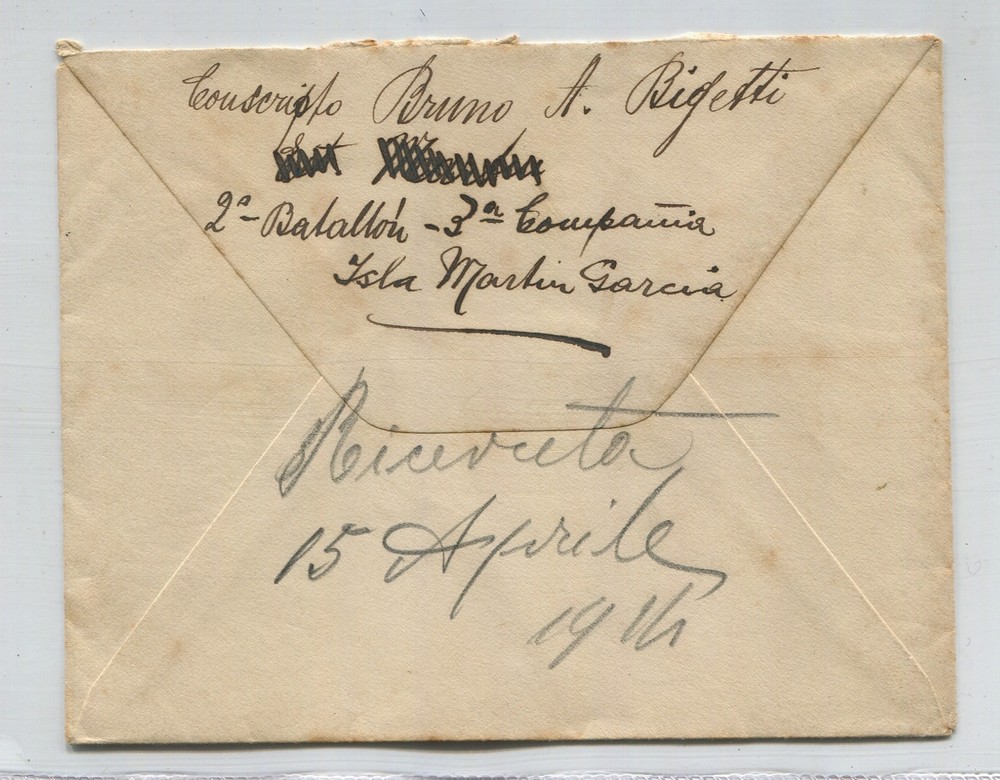 Conscripto Bruno A. Bigetti
2ª Batallón - 3ª Compañia
Isla Martin Garcia
Ricevuta
15 Aprile